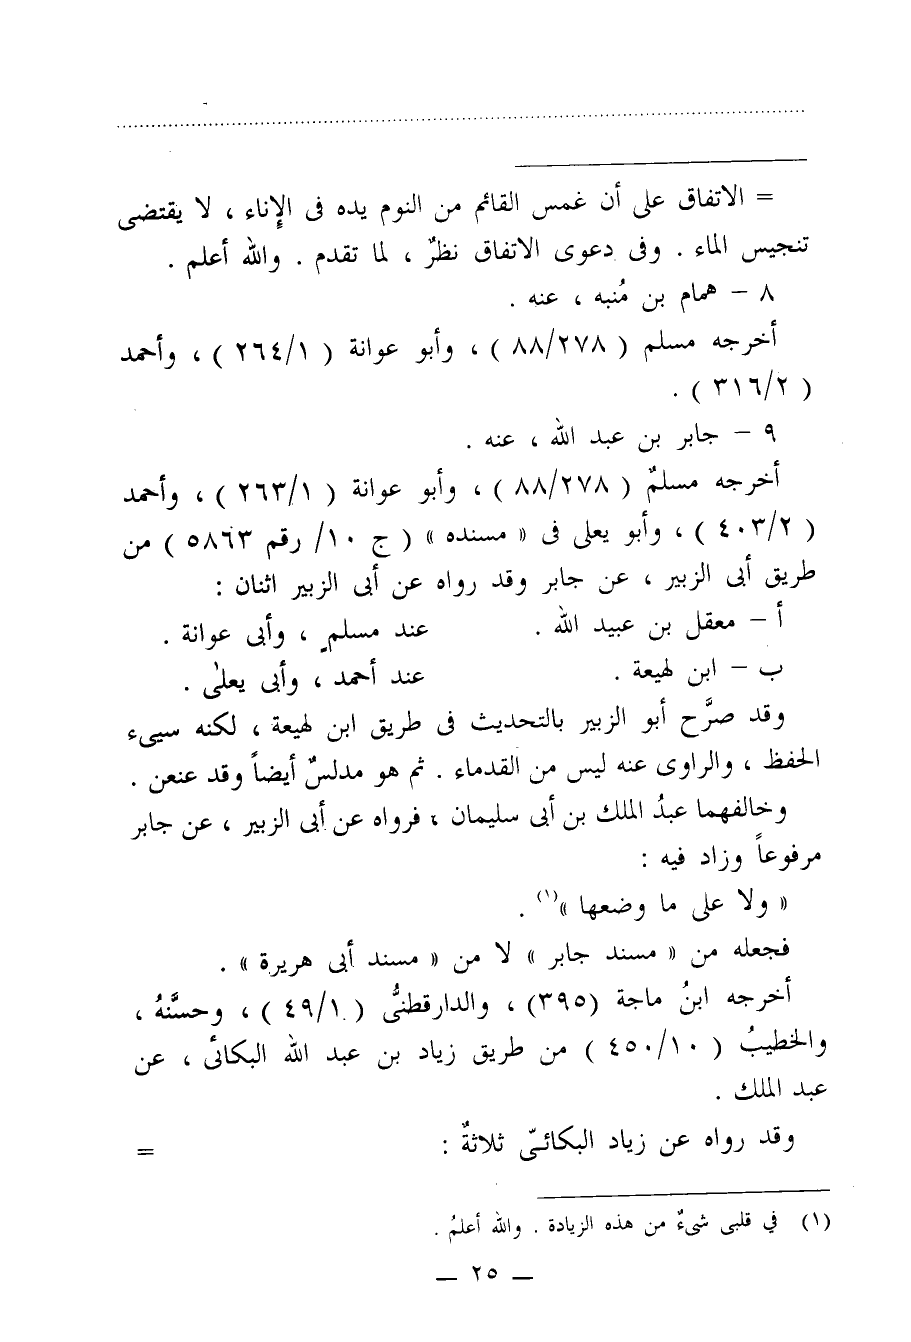 = الاتفاق على أن غمس القائم من النوم يده فى الإناء ، لا يقتضى
تنجيس الماء . وفى دعوى الاتفاق نظرٌ ، لما تقدم . والله أعلم .
٨ – همام بن مُنبه ، عنه .
أخرجه مسلم ( ٨٨/٢٧٨ ) ، وأبو عوانة ( ٢٦٤/١ ) ، وأحمد
( ٣١٦/٢ ) .
٩ – جابر بن عبد الله ، عنه .
أخرجه مسلمٌ ( ٨٨/٢٧٨ ) ، وأبو عوانة ( ٢٦٣/١ ) ، وأحمد
( ٤٠٣/٢ ) ، وأبو يعلى فى « مسنده » ( ج ١٠/ رقم ٥٨٦٣ ) من
طريق أبى الزبير ، عن جابر وقد رواه عن أبى الزبير اثنان :
أ – معقل بن عبيد الله . عند مسلمٍ ، وأبى عوانة .
ب – ابن لهيعة . عند أحمد ، وأبى يعلىٰ .
وقد صرَّح أبو الزبير بالتحديث فى طريق ابن لهيعة ، لكنه سيىء
الحفظ ، والراوى عنه ليس من القدماء . ثم هو مدلسٌ أيضاً وقد عنعن .
وخالفهما عبدُ الملك بن أبى سليمان ، فرواه عن أبى الزبير ، عن جابر
مرفوعاً وزاد فيه :
« ولا على ما وضعها »(١) .
فجعله من « مسند جابر » لا من « مسند أبى هريرة » .
أخرجه ابنُ ماجة (٣٩٥) ، والدارقطنىُّ ( ٤٩/١ ) ، وحسَّنهُ ،
والخطيبُ ( ٤٥٠/١٠ ) من طريق زياد بن عبد الله البكائى ، عن
عبد الملك .
وقد رواه عن زياد البكائىّ ثلاثةٌ : =
(١) في قلبى شىءٌ من هذه الزيادة . والله أعلمُ .
— ٢٥ —